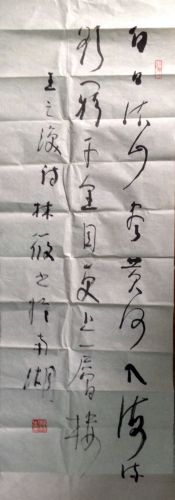 白日依山盡黄河入海流
欲窮千里目更上一層樓
王之涣詩林筱之於南湖